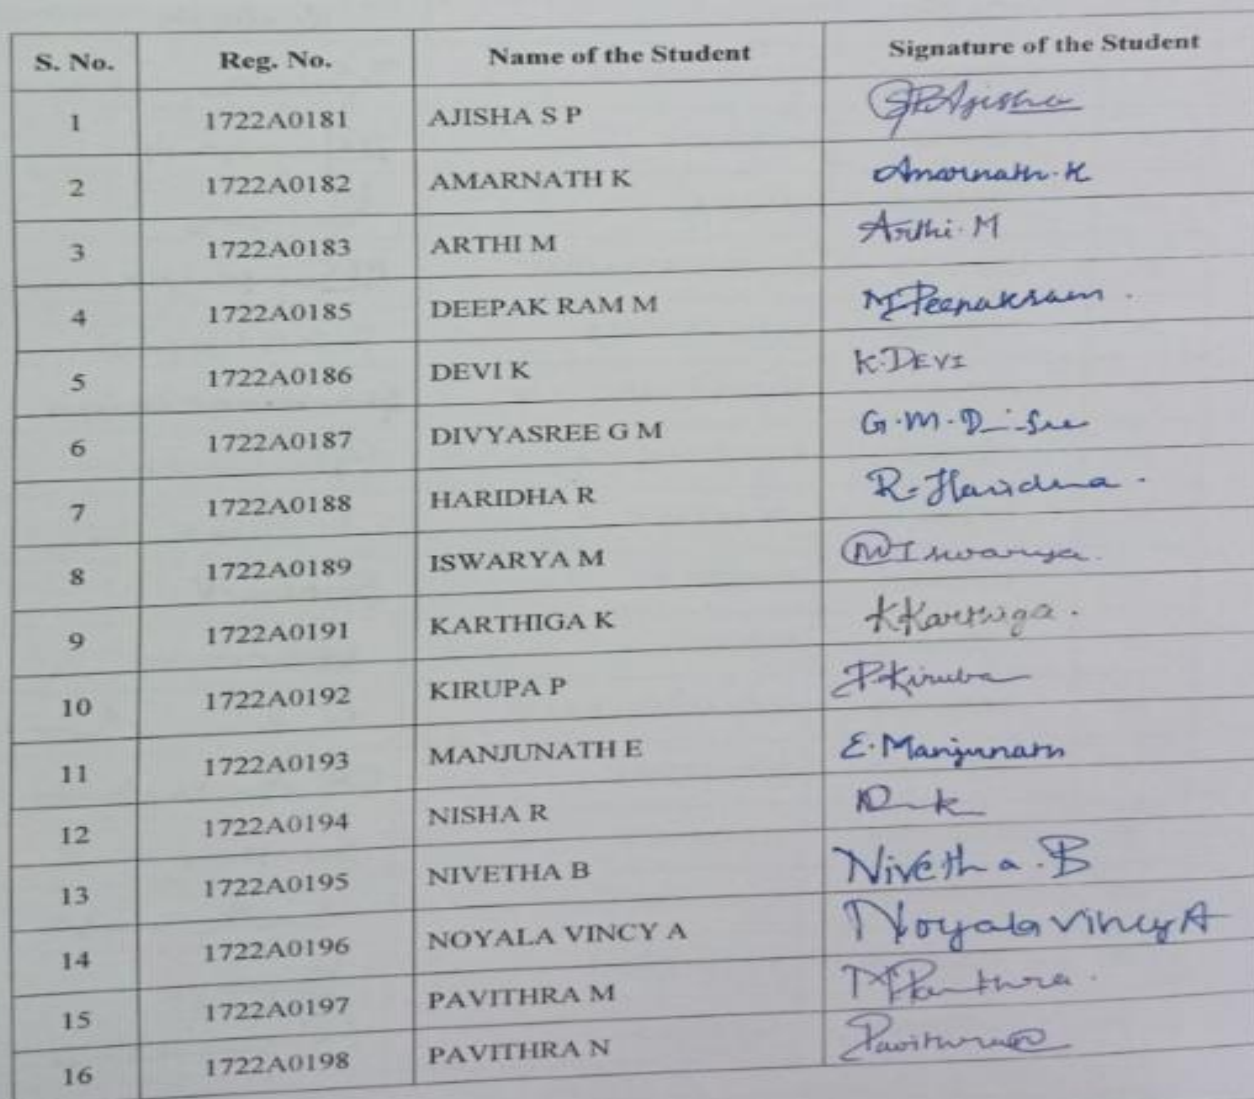 S. No. Reg. No. Name of the Student Signature of the Student
1 1722A0181 AJISHA S P S.P.Ajisha
2 1722A0182 AMARNATH K Amarnath.K
3 1722A0183 ARTHI M Arthi.M
4 1722A0185 DEEPAK RAM M M.Deepakram.
5 1722A0186 DEVI K K.DEVI
6 1722A0187 DIVYASREE G M G.M.
7 1722A0188 HARIDHA R R.Haridha.
8 1722A0189 ISWARYA M M Iswarya.
9 1722A0191 KARTHIGA K K Karthiga.
10 1722A0192 KIRUPA P P.Kiruba
11 1722A0193 MANJUNATH E E.Manjunath
12 1722A0194 NISHA R
13 1722A0195 NIVETHA B Nivetha.B
14 1722A0196 NOYALA VINCY A Noyala Vincy A
15 1722A0197 PAVITHRA M
16 1722A0198 PAVITHRA N Pavithra N